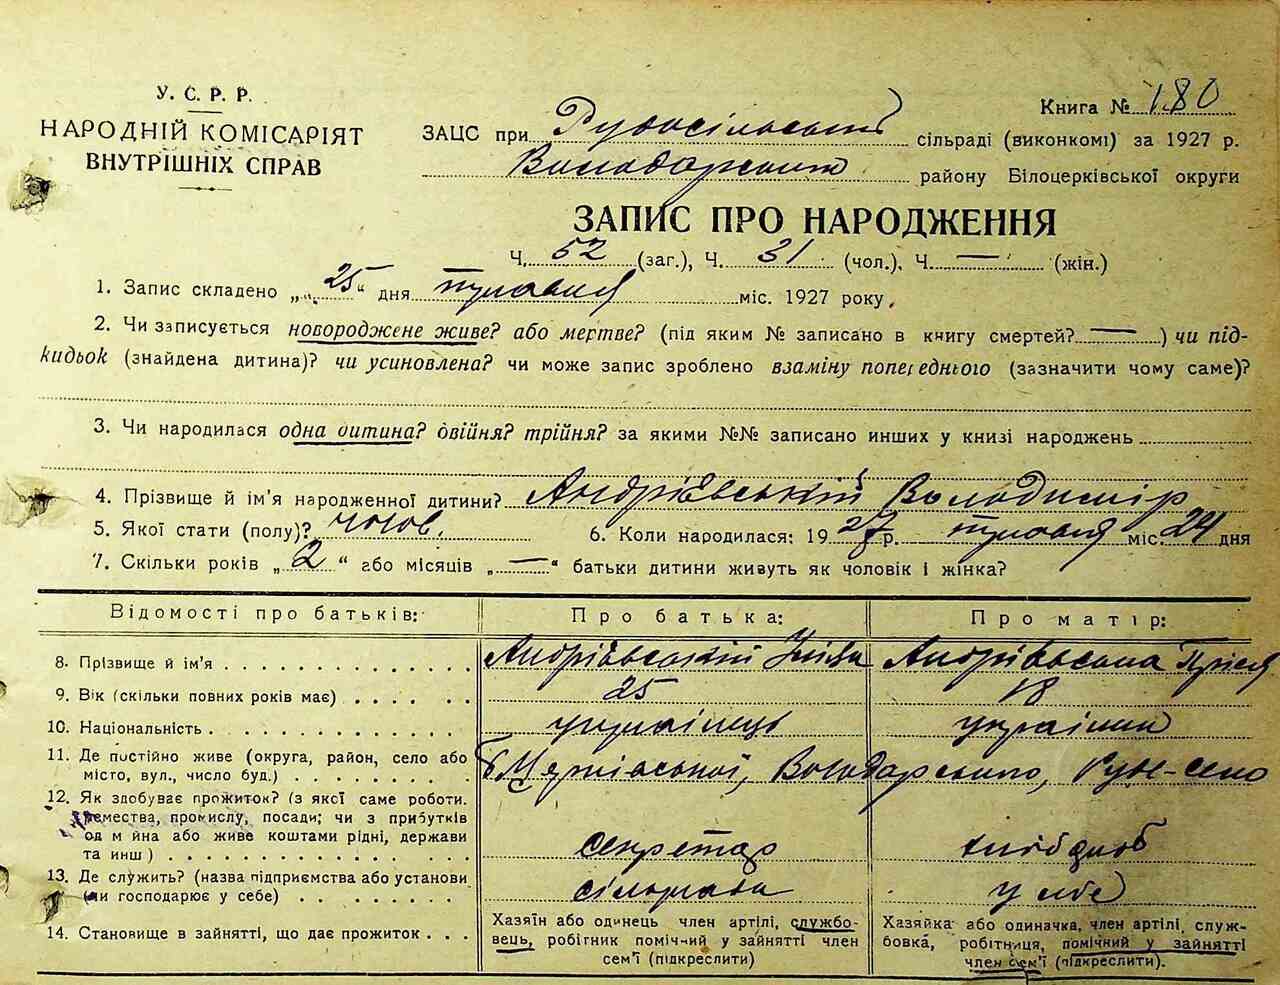 У. С. Р. Р.
НАРОДНІЙ КОМІСАРІЯТ
ВНУТРІШНІХ СПРАВ
Книга № 180
ЗАЦС при Рудосільській сільраді (виконкомі) за 1927 р.
Володарського району Білоцерківської округи
ЗАПИС ПРО НАРОДЖЕННЯ
Ч. 52 (заг.), Ч. 31 (чол.), Ч. — (жін.)
1. Запис складено „ 25 “ дня травня міс. 1927 року,
2. Чи записується новороджене живе? або мертве? (під яким № записано в книгу смертей? — ) чи під-
кидьок (знайдена дитина)? чи усиновлена? чи може запис зроблено взаміну попереднього (зазначити чому саме)?
3. Чи народилася одна дитина? двійня? трійня? за якими №№ записано инших у книзі народжень
4. Прізвище й ім'я народженної дитини? Андрієвський Володимір
5. Якої стати (полу)? чолов. 6. Коли народилася: 1927 р. травня міс. 24 дня
7. Скільки років „ 2 “ або місяців „ — “ батьки дитини живуть як чоловік і жінка?
Відомості про батьків: Про батька: Про матір:
8. Прізвище й ім'я Андрієвський Андрієвська
9. Вік (скільки повних років має) 25 18
10. Національність українець українка
11. Де постійно живе (округа, район, село або
місто, вул., число буд.) Б Церківської, Володарського, Руде-село
12. Як здобуває прожиток? (з якої саме роботи.
ремества, промислу, посади; чи з прибутків
од майна або живе коштами рідні, держави
та инш) секретар хлібороб
13. Де служить? (назва підприємства або установи
(чи господарює у себе) сільрада у себе
14. Становище в зайнятті, що дає прожиток
Хазяїн або одинець член артілі, службо-
вець, робітник помічний у зайнятті член
сем'ї (підкреслити)
Хазяйка або одиначка, член артілі, служ-
бовка, робітниця, помічний у зайнятті
член сем'ї (підкреслити).